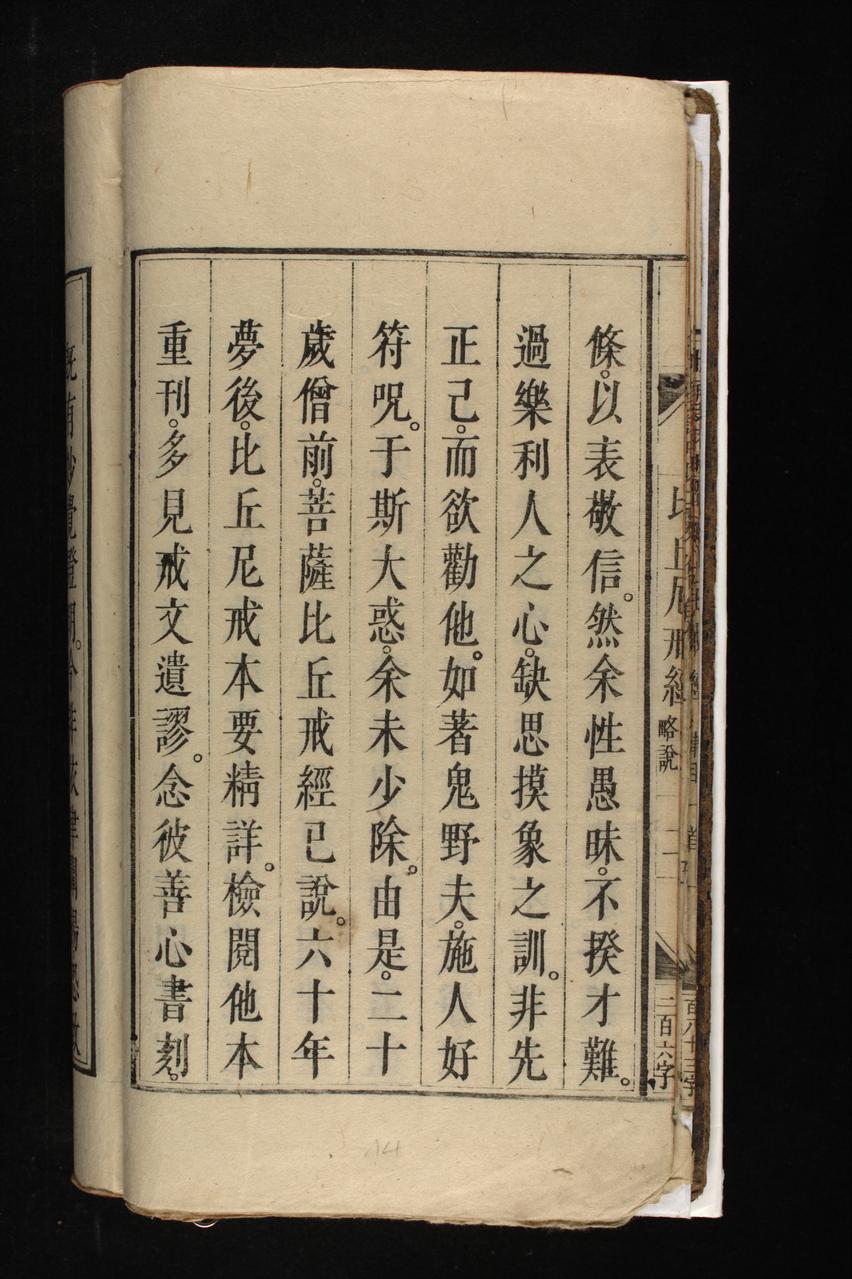 條。以表敬信。然余性愚昧。不揆才難。
過樂利人之心。缺思摸象之訓。非先
正己。而欲勸他。如著鬼野夫。施人好
符呪。于斯大惑。余未少除。由是。二十
歲僧前。菩薩比丘戒經已說。六十年
夢後。比丘尼戒本要精詳。檢閱他本
重刊。多見戒文遺謬。念彼善心書刻。
比丘尼戒經 略說 二百六字